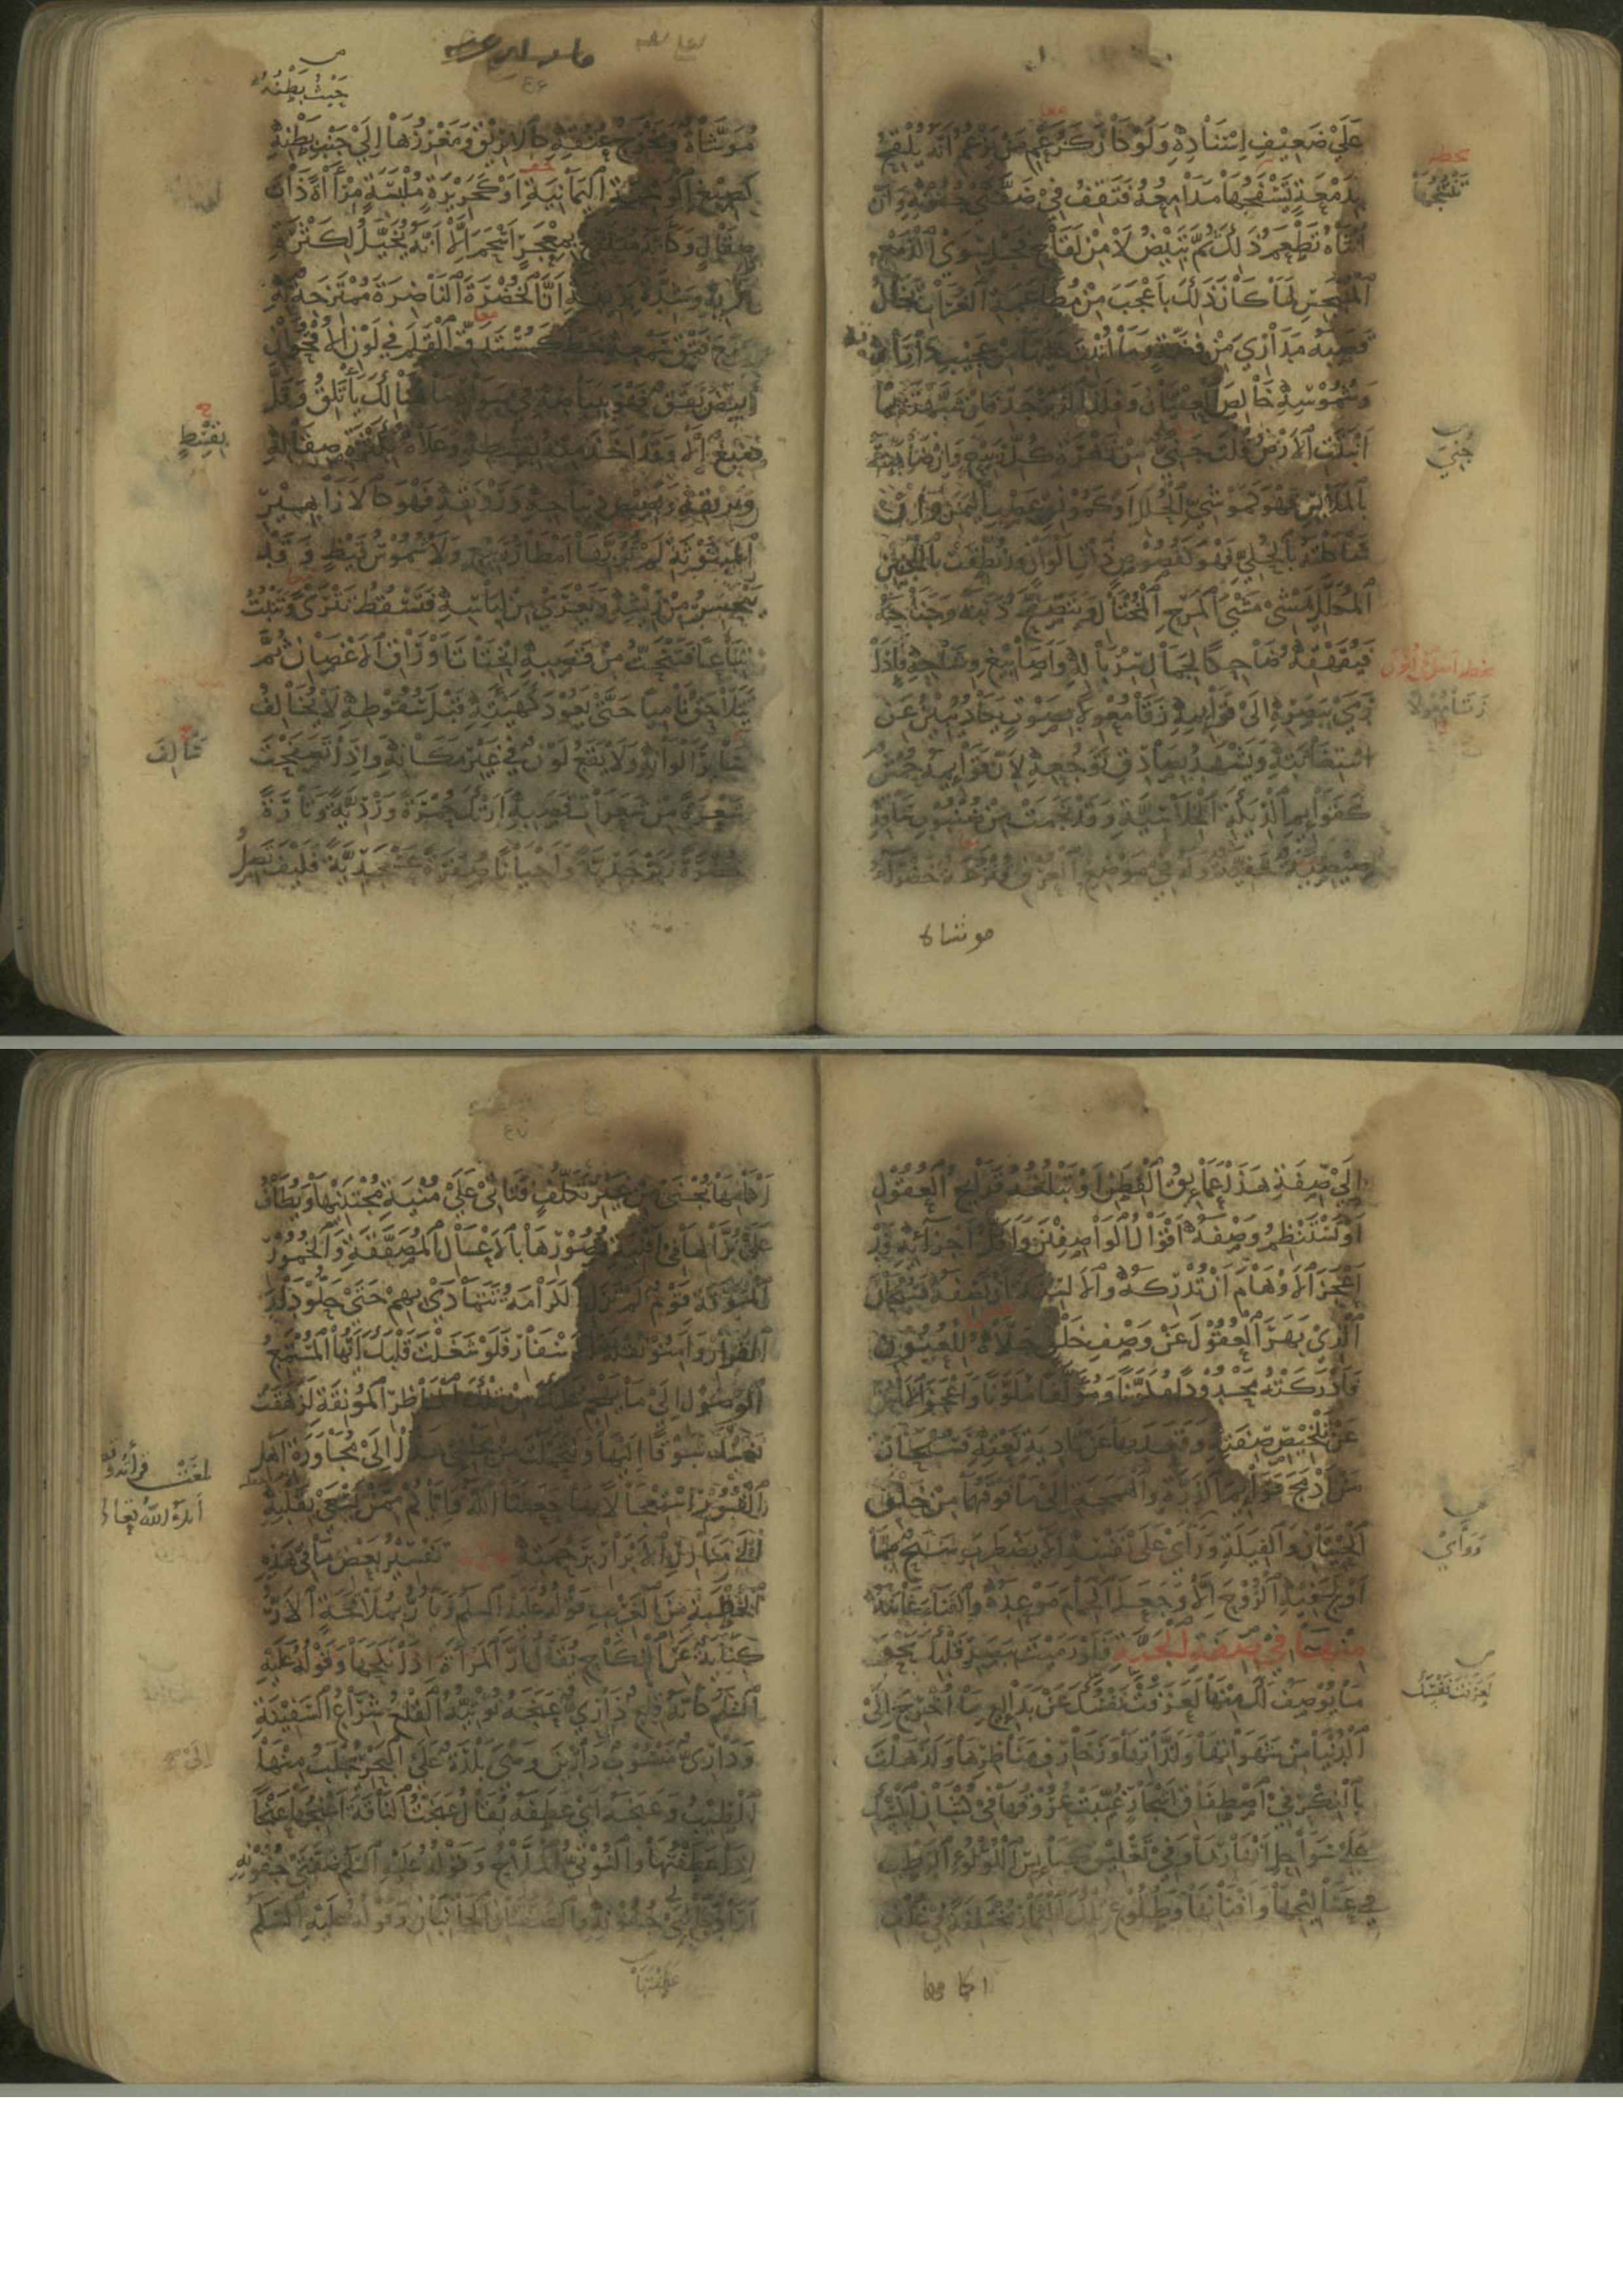 عَلَى ضَعِيفِ إِسْنَادِهِ وَلَوْ كَانَ كَزَعْمِ مَنْ يَزْعُمُ أَنَّهُ يُلْقِحُ
بِدَمْعَةٍ تَسْفَحُهَا مَدَامِعُهُ فَتَقِفُ فِي ضَفَّتَيْ جُفُونِهِ وَأَنَّ
أُنْثَاهُ تَطْعَمُ ذَلِكَ ثُمَّ تَبِيضُ لَا مِنْ لِقَاحِ فَحْلٍ سِوَى الدَّمْعِ
الْمُنْبَجِسِ لَمَا كَانَ ذَلِكَ بِأَعْجَبَ مِنْ مُطَاعَمَةِ الْغُرَابِ تَخَالُ
قَصَبَهُ مَدَارِيَ مِنْ فِضَّةٍ وَمَا أُنْبِتَ عَلَيْهَا مِنْ عَجِيبِ دَارَاتِهِ
وَشُمُوسِهِ خَالِصَ الْعِقْيَانِ وَفِلَذَ الزَّبَرْجَدِ فَإِنْ شَبَّهْتَهُ بِمَا
أَنْبَتَتِ الْأَرْضُ قُلْتَ جَنِيٌّ مِنْ زَهْرَةِ كُلِّ رَبِيعٍ وَإِنْ ضَاهَيْتَهُ
بِالْمَلَابِسِ فَهُوَ كَمَوْشِيِّ الْحُلَلِ أَوْ كَمُونِقِ عَصْبِ الْيَمَنِ وَإِنْ
شَاكَلْتَهُ بِالْحُلِيِّ فَهُوَ كَفُصُوصٍ ذَاتِ أَلْوَانٍ قَدْ نُطِّقَتْ بِاللُّجَيْنِ
الْمُكَلَّلِ يَمْشِي مَشْيَ الْمَرِحِ الْمُخْتَالِ وَيَتَصَفَّحُ ذَنَبَهُ وَجَنَاحَهُ
فَيُقَهْقِهُ ضَاحِكًا لِجَمَالِ سِرْبَالِهِ وَأَصَابِيغِ وِشَاحِهِ فَإِذَا
رَمَى بِبَصَرِهِ إِلَى قَوَائِمِهِ زَقَا مُعْوِلًا بِصَوْتٍ يَكَادُ يُبِينُ عَنِ
اسْتِغَاثَتِهِ وَيَشْهَدُ بِصَادِقِ تَوَجُّعِهِ لِأَنَّ قَوَائِمَهُ حُمْشٌ
كَقَوَائِمِ الدِّيَكَةِ الْخِلَاسِيَّةِ وَقَدْ نَجَمَتْ مِنْ ظُنْبُوبِ سَاقِهِ
صِيصِيَةٌ خَفِيَّةٌ وَلَهُ فِي مَوْضِعِ الْعُرْفِ قُنْزُعَةٌ خَضْرَاءُ
موشاة
جُنِيَ
زَقَا مُعْوِلًا
حَيْثُ بَطْنُهُ
مُوَشَّاةٌ وَمَخْرَجُ عُنُقِهِ كَالْإِبْرِيقِ وَمَغْرِزُهَا إِلَى حَيْثُ بَطْنُهُ
كَصِبْغِ الْوَسِمَةِ الْيَمَانِيَةِ أَوْ كَحَرِيرَةٍ مُلْبَسَةٍ مِرْآةً ذَاتَ
صِقَالٍ وَكَأَنَّهُ مُتَلَفِّعٌ بِمِعْجَرٍ أَسْحَمَ إِلَّا أَنَّهُ يُخَيَّلُ لِكَثْرَةِ
مَائِهِ وَشِدَّةِ بَرِيقِهِ أَنَّ الْخُضْرَةَ النَّاضِرَةَ مُمْتَزِجَةٌ بِهِ
وَمَعَ فَتْقِ سَمْعِهِ خَطٌّ كَمُسْتَدَقِّ الْقَلَمِ فِي لَوْنِ الْأُقْحُوَانِ
أَبْيَضُ يَقَقٌ فَهُوَ بِبَيَاضِهِ فِي سَوَادِ مَا هُنَالِكَ يَأْتَلِقُ وَقَلَّ
صِبْغٌ إِلَّا وَقَدْ أَخَذَ مِنْهُ بِقِسْطٍ وَعَلَاهُ بِكَثْرَةِ صِقَالِهِ
وَبَرِيقِهِ وَبَصِيصِ دِيبَاجِهِ وَرَوْنَقِهِ فَهُوَ كَالْأَزَاهِيرِ
الْمَبْثُوثَةِ لَمْ تُرَبِّهَا أَمْطَارُ رَبِيعٍ وَلَا شُمُوسُ قَيْظٍ وَقَدْ
يَتَحَسَّرُ مِنْ رِيشِهِ وَيَعْرَى مِنْ لِبَاسِهِ فَيَسْقُطُ تَتْرَى وَيَنْبُتُ
تِبَاعًا فَيَنْحَتُّ مِنْ قَصَبِهِ انْحِتَاتَ أَوْرَاقِ الْأَغْصَانِ ثُمَّ
يَتَلَاحَقُ نَامِيًا حَتَّى يَعُودَ كَهَيْئَتِهِ قَبْلَ سُقُوطِهِ لَا يُخَالِفُ
سَائِرَ أَلْوَانِهِ وَلَا يَقَعُ لَوْنٌ فِي غَيْرِ مَكَانِهِ وَإِذَا تَصَفَّحْتَ
شَعْرَةً مِنْ شَعَرَاتِ قَصَبِهِ أَرَتْكَ حُمْرَةً وَرْدِيَّةً وَتَارَةً
خُضْرَةً زَبَرْجَدِيَّةً وَأَحْيَانًا صُفْرَةً عَسْجَدِيَّةً فَكَيْفَ تَصِلُ
بِقِسْطٍ
سَالِفَ
إِلَى صِفَةِ هَذَا عَمَائِقُ الْفِطَنِ أَوْ تَبْلُغُهُ قَرَائِحُ الْعُقُولِ
أَوْ تَسْتَنْظِمُ وَصْفَهُ أَقْوَالُ الْوَاصِفِينَ وَأَقَلُّ أَجْزَائِهِ قَدْ
أَعْجَزَ الْأَوْهَامَ أَنْ تُدْرِكَهُ وَالْأَلْسِنَةَ أَنْ تَصِفَهُ فَسُبْحَانَ
الَّذِي بَهَرَ الْعُقُولَ عَنْ وَصْفِ خَلْقٍ جَلَّاهُ لِلْعُيُونِ
فَأَدْرَكَتْهُ مَحْدُودًا مُكَوَّنًا وَمُؤَلَّفًا مُلَوَّنًا وَأَعْجَزَ الْأَلْسُنَ
عَنْ تَلْخِيصِ صِفَتِهِ وَقَعَدَ بِهَا عَنْ تَأْدِيَةِ نَعْتِهِ فَسُبْحَانَ
مَنْ أَدْمَجَ قَوَائِمَ الذَّرَّةِ وَالْهَمَجَةِ إِلَى مَا فَوْقَهُمَا مِنْ خَلْقِ
الْحِيتَانِ وَالْفِيَلَةِ وَوَأَى عَلَى نَفْسِهِ أَلَّا يَضْطَرِبَ شَبَحٌ مِمَّا
أَوْلَجَ فِيهِ الرُّوحَ إِلَّا وَجَعَلَ الْحِمَامَ مَوْعِدَهُ وَالْفَنَاءَ غَايَتَهُ
مِنْهَا فِي صِفَةِ الْجَنَّةِ فَلَوْ رَمَيْتَ بِبَصَرِ قَلْبِكَ نَحْوَ
مَا يُوصَفُ لَكَ مِنْهَا لَعَزَفَتْ نَفْسُكَ عَنْ بَدَائِعِ مَا أُخْرِجَ إِلَى
الدُّنْيَا مِنْ شَهَوَاتِهَا وَلَذَّاتِهَا وَزَخَارِفِ مَنَاظِرِهَا وَلَذَهِلَتْ
بِالْفِكْرِ فِي اصْطِفَاقِ أَشْجَارٍ غُيِّبَتْ عُرُوقُهَا فِي كُثْبَانِ الْمِسْكِ
عَلَى سَوَاحِلِ أَنْهَارِهَا وَفِي تَعْلِيقِ كَبَائِسِ اللُّؤْلُؤِ الرَّطْبِ
فِي عَسَالِيجِهَا وَأَفْنَانِهَا وَطُلُوعِ تِلْكَ الثِّمَارِ مُخْتَلِفَةً فِي غُلُفِ
اكامها
وَوَأَى
لَعَزَفَتْ نَفْسُكَ
أَكْمَامِهَا تُجْنَى مِنْ غَيْرِ تَكَلُّفٍ فَتَأْتِي عَلَى مُنْيَةِ مُجْتَنِيهَا وَيُطَافُ
عَلَى نُزَّالِهَا فِي أَفْنِيَةِ قُصُورِهَا بِالْأَعْسَالِ الْمُصَفَّقَةِ وَالْخُمُورِ
الْمُرَوَّقَةِ قَوْمٌ لَمْ تَزَلِ الْكَرَامَةُ تَتَمَادَى بِهِمْ حَتَّى حَلُّوا دَارَ
الْقَرَارِ وَأَمِنُوا نُقْلَةَ الْأَسْفَارِ فَلَوْ شَغَلْتَ قَلْبَكَ أَيُّهَا الْمُسْتَمِعُ
بِالْوُصُولِ إِلَى مَا يَهْجُمُ عَلَيْكَ مِنْ تِلْكَ الْمَنَاظِرِ الْمُونِقَةِ لَزَهَقَتْ
نَفْسُكَ شَوْقًا إِلَيْهَا وَلَتَحَمَّلْتَ مِنْ مَجْلِسِي هَذَا إِلَى مُجَاوَرَةِ أَهْلِ
الْقُبُورِ اسْتِعْجَالًا بِهَا جَعَلَنَا اللَّهُ وَإِيَّاكُمْ مِمَّنْ يَسْعَى بِقَلْبِهِ
إِلَى مَنَازِلِ الْأَبْرَارِ بِرَحْمَتِهِ تَفْسِيرُ بَعْضِ مَا فِي هَذِهِ
الْخُطْبَةِ مِنَ الْغَرِيبِ قَوْلُهُ عَلَيْهِ السَّلَمُ وَيَؤُرُّ بِمَلَاقِحِهِ الْأَرُّ
كِنَايَةٌ عَنِ النِّكَاحِ يُقَالُ أَرَّ الْمَرْأَةَ إِذَا نَكَحَهَا وَقَوْلُهُ عَلَيْهِ
السَّلَمُ كَأَنَّهُ قِلْعُ دَارِيٍّ عَنَجَهُ نُوتِيُّهُ الْقِلْعُ شِرَاعُ السَّفِينَةِ
وَدَارِيٌّ مَنْسُوبٌ دَارِينَ وَهِيَ بَلْدَةٌ عَلَى الْبَحْرِ يُجْلَبُ مِنْهَا
الطِّيبُ وَعَنَجَهُ أَيْ عَطَفَهُ يُقَالُ عَنَجْتُ النَّاقَةَ أَعْنُجُهَا عَنْجًا
إِذَا عَطَفْتَهَا وَالنُّوتِيُّ الْمَلَّاحُ وَقَوْلُهُ عَلَيْهِ السَّلَمُ ضَفَّتَيْ جُفُونِهِ
أَرَادَ جَانِبَيْ جُفُونِهِ وَالضَّفَّتَانِ الْجَانِبَانِ وَقَوْلُهُ عَلَيْهِ السَّلَمُ
عَطَفْتَهَا